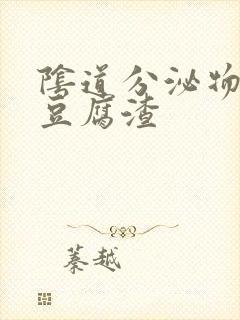 陰道分泌物
豆腐渣
蓁越